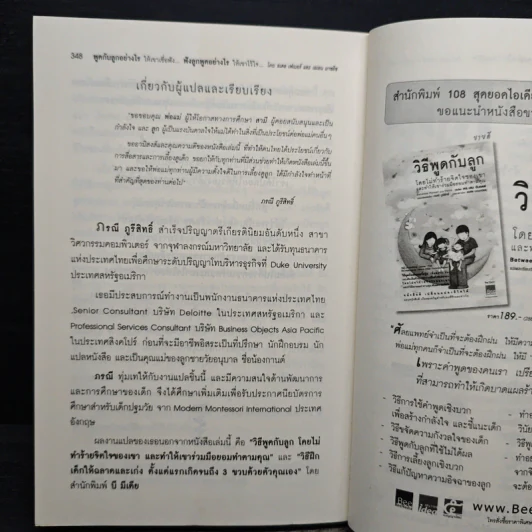 348 พูดกับลูกอย่างไร ให้เขาเชื่อฟัง... ฟังลูกพูดอย่างไร ให้เขาไว้ใจ...
เกี่ยวกับผู้แปลและเรียบเรียง
"ขอขอบคุณ พ่อแม่ ผู้ให้โอกาสทางการศึกษา สามี ผู้คอยสนับสนุนและเป็น
กำลังใจ และ ลูก ผู้เป็นแรงบันดาลใจให้แม่ได้ทำในสิ่งที่เป็นประโยชน์ต่อพ่อแม่คนอื่นๆ
ขออานิสงส์และคุณความดีของหนังสือเล่มนี้ ที่ทำให้คนไทยได้ประโยชน์เกี่ยวกับ
การสื่อสารและการเลี้ยงดูเด็ก
ที่สำคัญที่สุดของท่านต่อไป"
ภรณี ภูริสิทธิ์
ภรณี ภูริสิทธิ์ สำเร็จปริญญาตรีเกียรตินิยมอันดับหนึ่ง สาขา
วิศวกรรมคอมพิวเตอร์ จากจุฬาลงกรณ์มหาวิทยาลัย และได้รับทุนธนาคาร
แห่งประเทศไทยเพื่อศึกษาระดับปริญญาโทบริหารธุรกิจที่ Duke University
ประเทศสหรัฐอเมริกา
เธอมีประสบการณ์ทำงานเป็นพนักงานธนาคารแห่งประเทศไทย
,Senior Consultant บริษัท Deloitte ในประเทศสหรัฐอเมริกา และ
Professional Services Consultant บริษัท Business Objects Asia Pacific
ในประเทศสิงคโปร์ ก่อนที่จะมีอาชีพอิสระเป็นที่ปรึกษา นักฝึกอบรม นัก
แปลหนังสือ และเป็นคุณแม่ของลูกชายวัยอนุบาล ชื่อน้องกานต์
ภรณี ทุ่มเทให้กับงานแปลชิ้นนี้ และมีความสนใจด้านพัฒนาการ
และการศึกษาของเด็ก จึงได้ศึกษาเพิ่มเติมเพื่อรับประกาศนียบัตรการ
ศึกษาสำหรับเด็กปฐมวัย จาก Modern Montessori International ประเทศ
อังกฤษ
ผลงานแปลของเธอนอกจากหนังสือเล่มนี้ คือ "วิธีพูดกับลูก โดยไม่
ทำร้ายจิตใจของเขา และทำให้เขาร่วมมือยอมทำตามคุณ" และ "วิธีฝึก
เด็กให้ฉลาดและเก่ง ตั้งแต่แรกเกิดจนถึง 3 ขวบด้วยตัวคุณเอง" โดย
สำนักพิมพ์ บี มีเดีย
สำนักพิมพ์ 108 สุดยอดไอเดีย
ขอแนะนำหนังสือขา
วิธีพูดกับลูก
โดยไม่ทำร้ายจิตใจของเขา
วิ
โดย
และท
Betwee
ราคา 189.-
"ศัลยแพทย์จำเป็นที่จะต้องฝึกฝน ให้มีความ
พ่อแม่ทุกคนก็จำเป็นที่จะต้องฝึกฝน ให้มี
เพราะคำพูดของคนเรา เปรีย
ที่สามารถทำให้เกิดบาดแผลร้า
- วิธีการใช้คำพูดเชิงบวก
เพื่อสร้างกำลังใจ และชี้แนะเด็ก
- วิธีขจัดความกังวลใจของเด็ก
- วิธีพูดกับลูกที่ใช้ไม่ได้ผล
- วิธีการเลี้ยงลูกเชิงบวก
- วิธีแก้ปัญหาความอิจฉาของลูก
www.Be